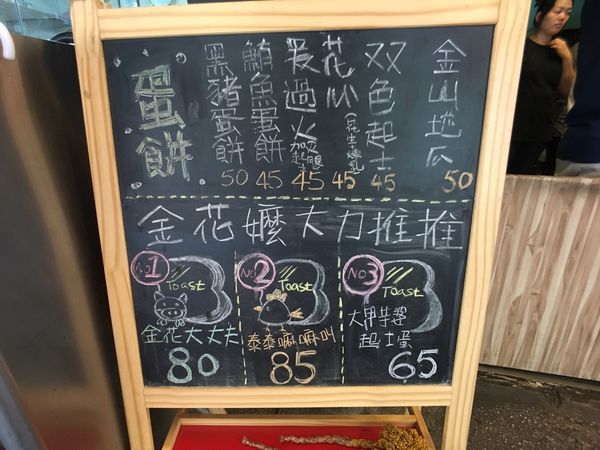 蛋餅
黑豬蛋餅 50
鮪魚蛋餅 45
最過火(火腿加起士) 45
花心(花生煉乳) 45
双色起士 45
金山地瓜 50
金花嬤大力推推
No1 Toast
金花大丈夫
80
No2 Toast
泰泰嘛嘛叫
85
No3 Toast
大甲芋婆
起士蛋
65